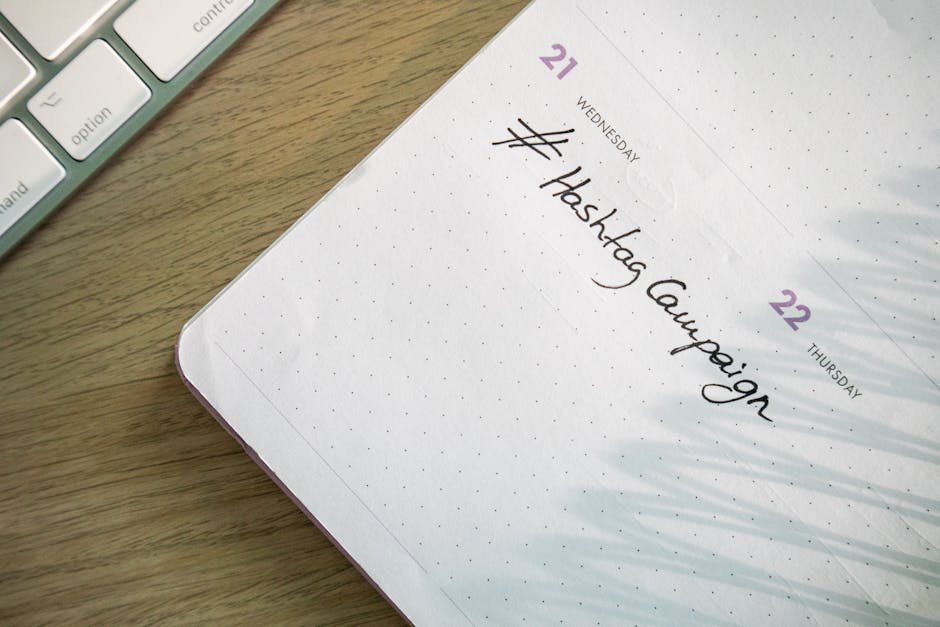 control
option
mand
21
WEDNESDAY
# Hashtag Campaign
22
THURSDAY